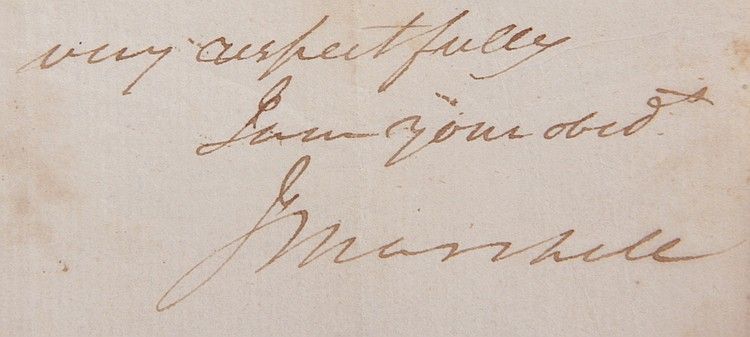 very respectfully
I am your obedt
J Marshall